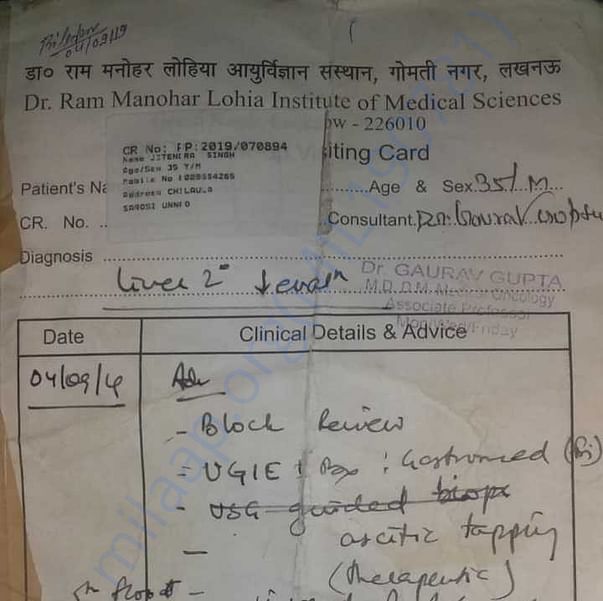 04/09/19
डा० राम मनोहर लोहिया आयुर्विज्ञान संस्थान, गोमती नगर, लखनऊ
Dr. Ram Manohar Lohia Institute of Medical Sciences
ow - 226010
siting Card
CR No: PP:2019/070894
Name JITENDRA SINGH
Age/Sex 35 Y/M
Mobile No
Address CHILAULA
SAROSI UNNAO
Patient's Na
Age & Sex 35/M
CR. No.
Consultant Dr. Gaurav Gupta
Diagnosis
Liver 2°
Dr. GAURAV GUPTA
M.D. D.M. Medical Oncology
Associate Professor
Monday/Friday
Date
Clinical Details & Advice
04/09/19
Adv
- Block Review
- UGIE Gastromed
- USG guided biops
ascitic tapping
(therapeutic)
milaap.org